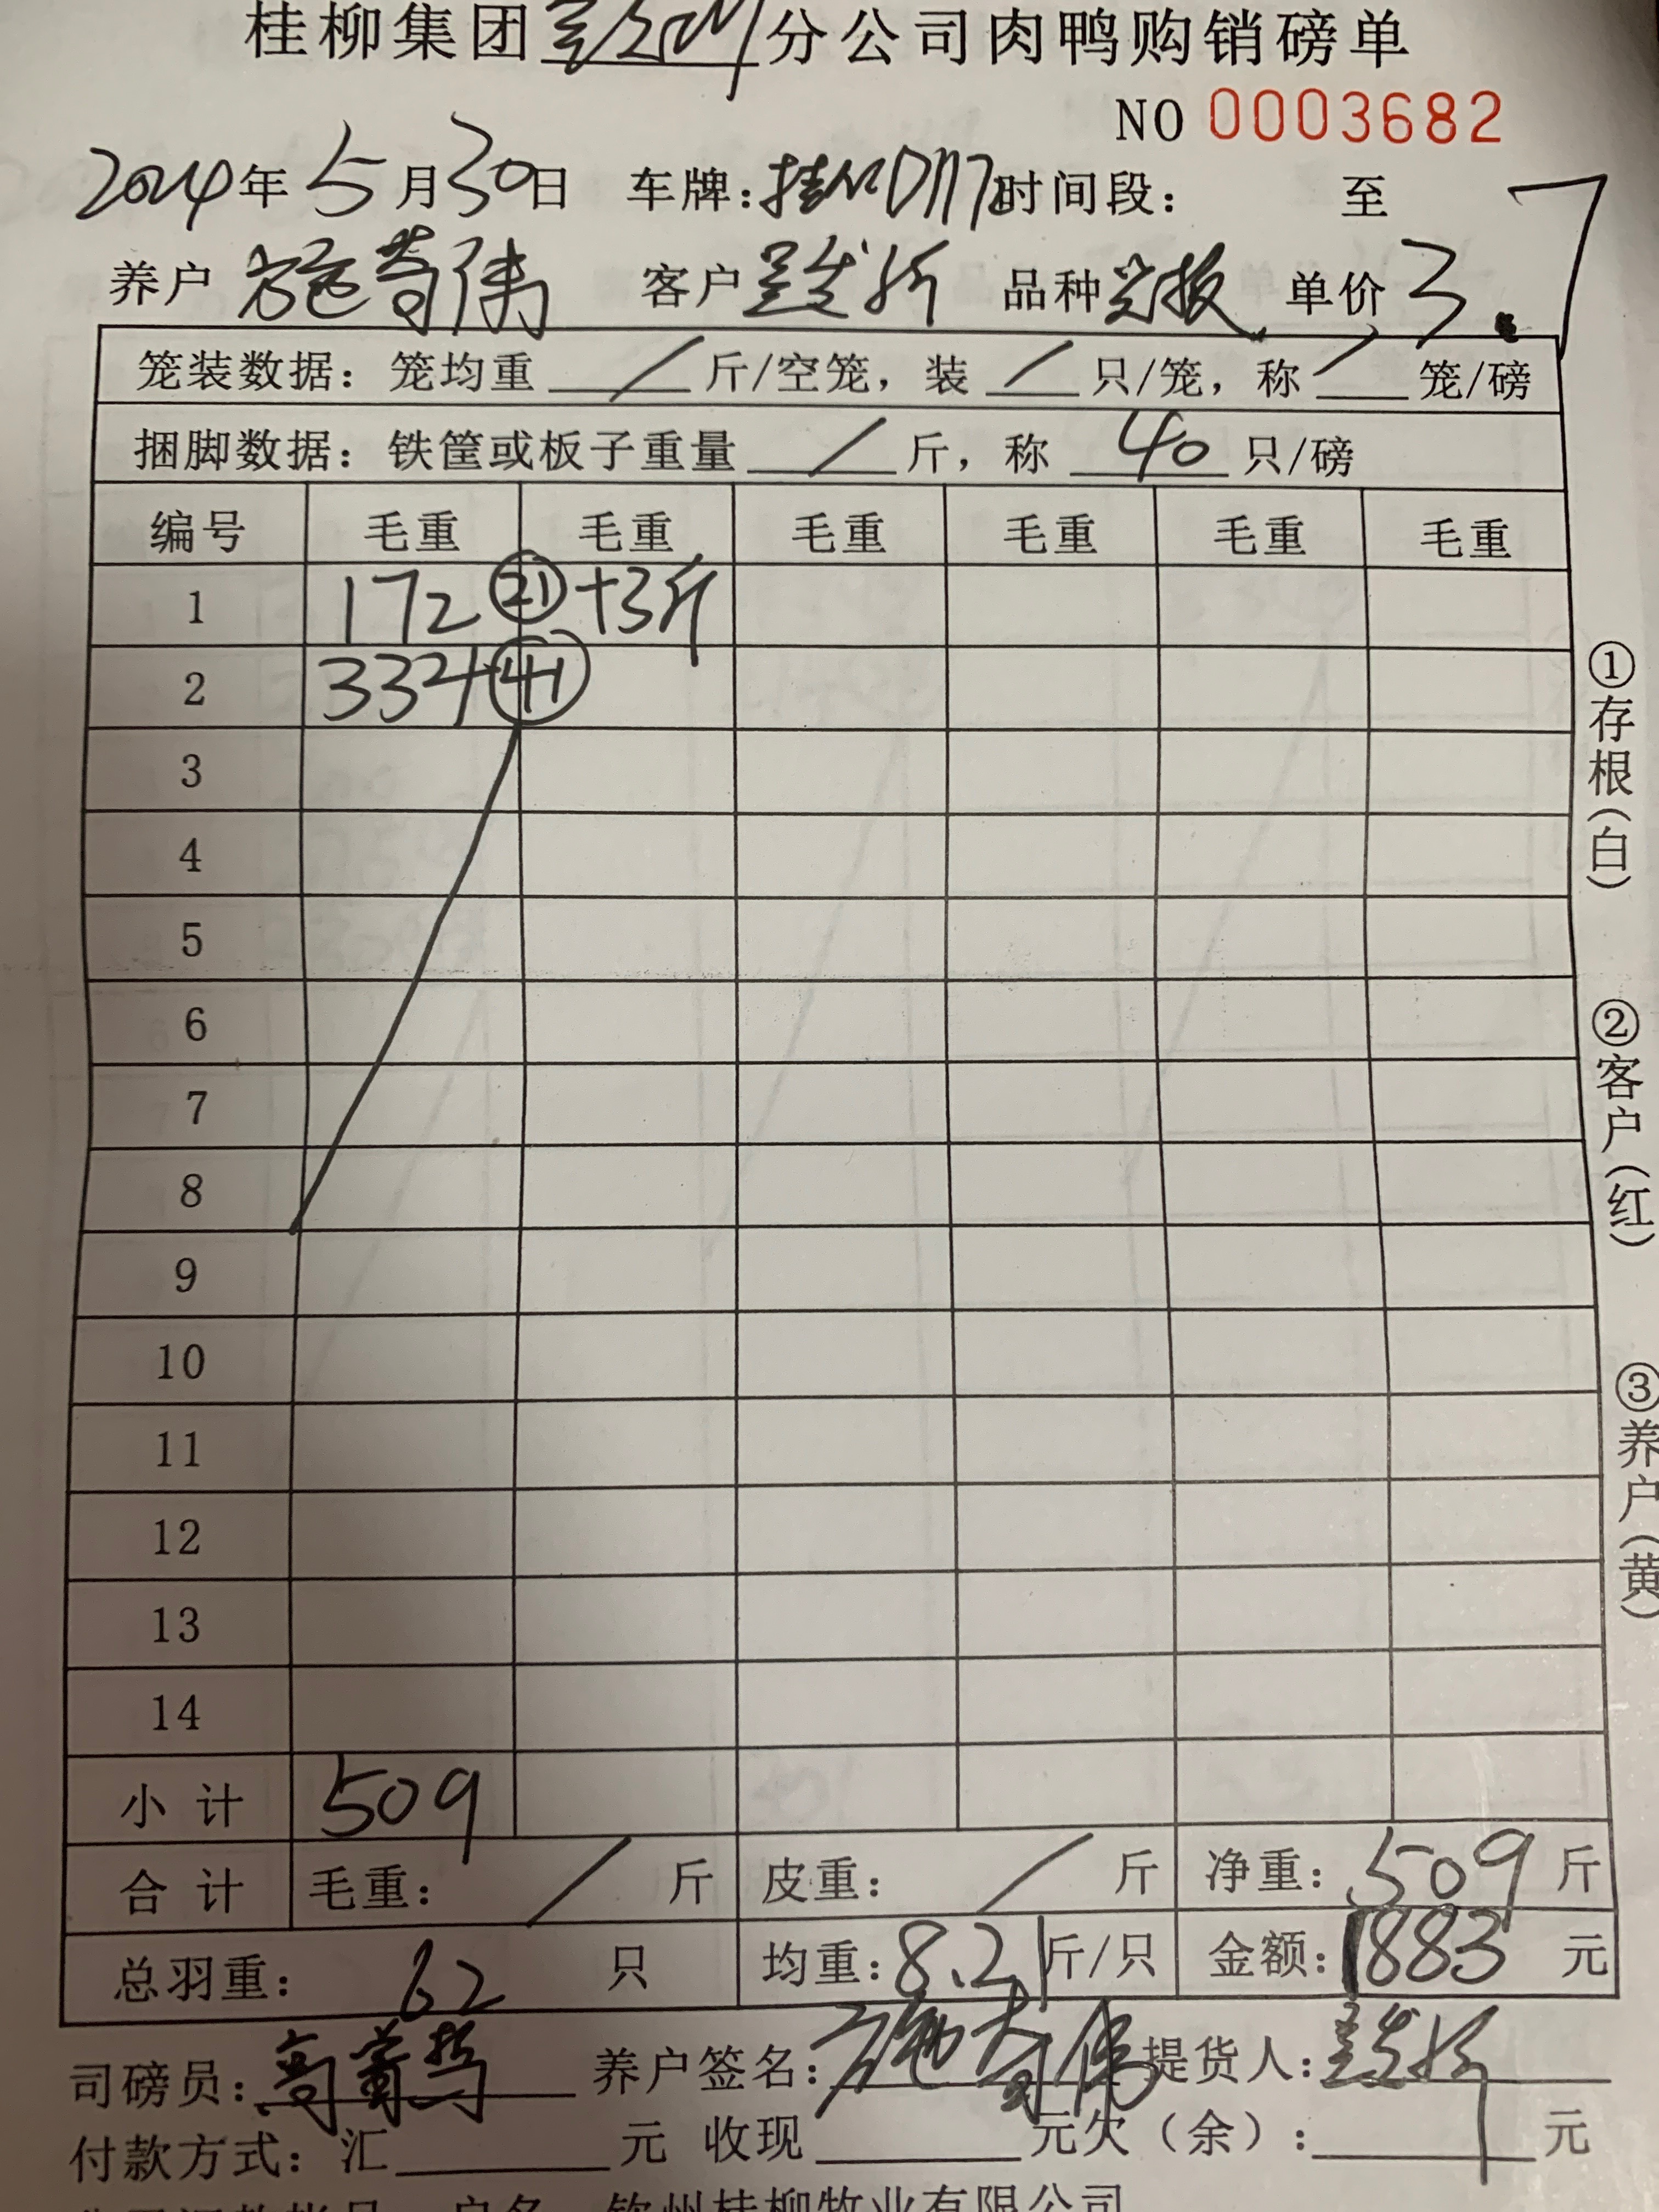 桂柳集团 分公司肉鸭购销磅单
NO 0003682
2024年5月30日 车牌: 时间段: 至
养户 施 伟 客户 品种 单价 3.7
笼装数据: 笼均重 / 斤/空笼, 装 / 只/笼, 称 / 笼/磅
捆脚数据: 铁筐或板子重量 / 斤, 称 40 只/磅
编号 毛重 毛重 毛重 毛重 毛重 毛重
1 172 ㉑ +3斤
2 334 ㊶
3
4
5
6
7
8
9
10
11
12
13
14
小计 509
合计 毛重: / 斤 皮重: / 斤 净重: 509 斤
总羽重: 62 只 均重: 8.21 斤/只 金额: 1883 元
司磅员: 养户签名: 施 伟 提货人:
付款方式: 汇 元 收现 元欠(余): 元
户名 钦州桂柳牧业有限公司
①存根(白)
②客户(红)
③养户(黄)